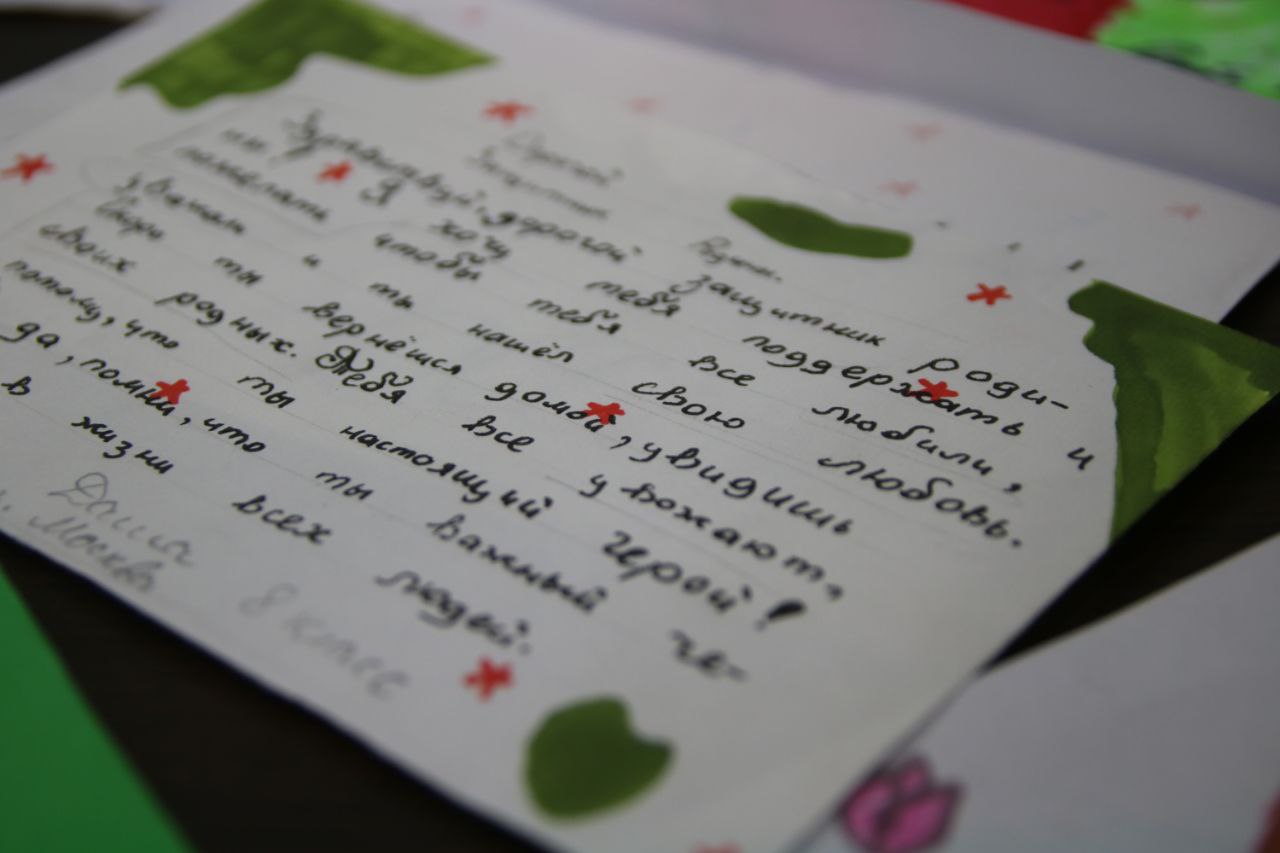 Дорогой
Защитник
Родины.
Здравствуй дорогой защитник Роди-
ны! Я хочу тебя поддержать и
пожелать чтобы тебя все любили,
и ты нашёл свою любовь.
Верю ты вернёшся домой, увидишь
своих родных. Тебя все уважают,
потому, что ты настоящий герой!
да, помни, что ты важный че-
в жизни всех людей.
Даша 8 класс
г. Москва